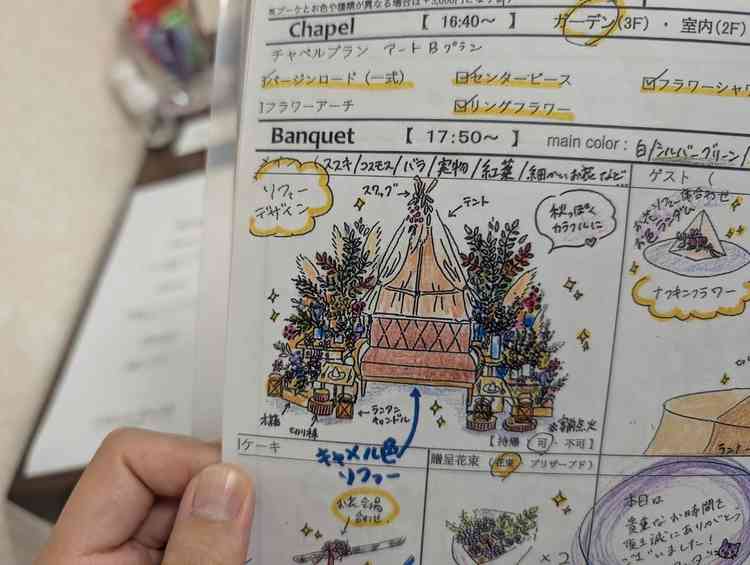 Chapel 【 16:40～ 】 ガーデン(3F) ・ 室内(2F)
チャペルプラン アートBプラン
バージンロード（一式） ☑センターピース ☑フラワーシャワ
フラワーアーチ ☑リングフラワー
Banquet 【 17:50～ 】 main color : 白/シルバーグリーン/
ススキ/コスモス/バラ/実物/紅葉/細かいお花など…
ソファー
デザイン
スワッグ
テント
秋っぽく
カラフルに
ゲスト（
ナフキンフラワー
木箱
切り株
ランタン
キャンドル
キャメル色
ソファー
【 持帰 可 ・ 不可 】
ケーキ
贈呈花束（花束・プリザーブド）
お花 会場
合わせ
×2
本日は
貴重なお時間を
頂き誠にありがとう
ございました！